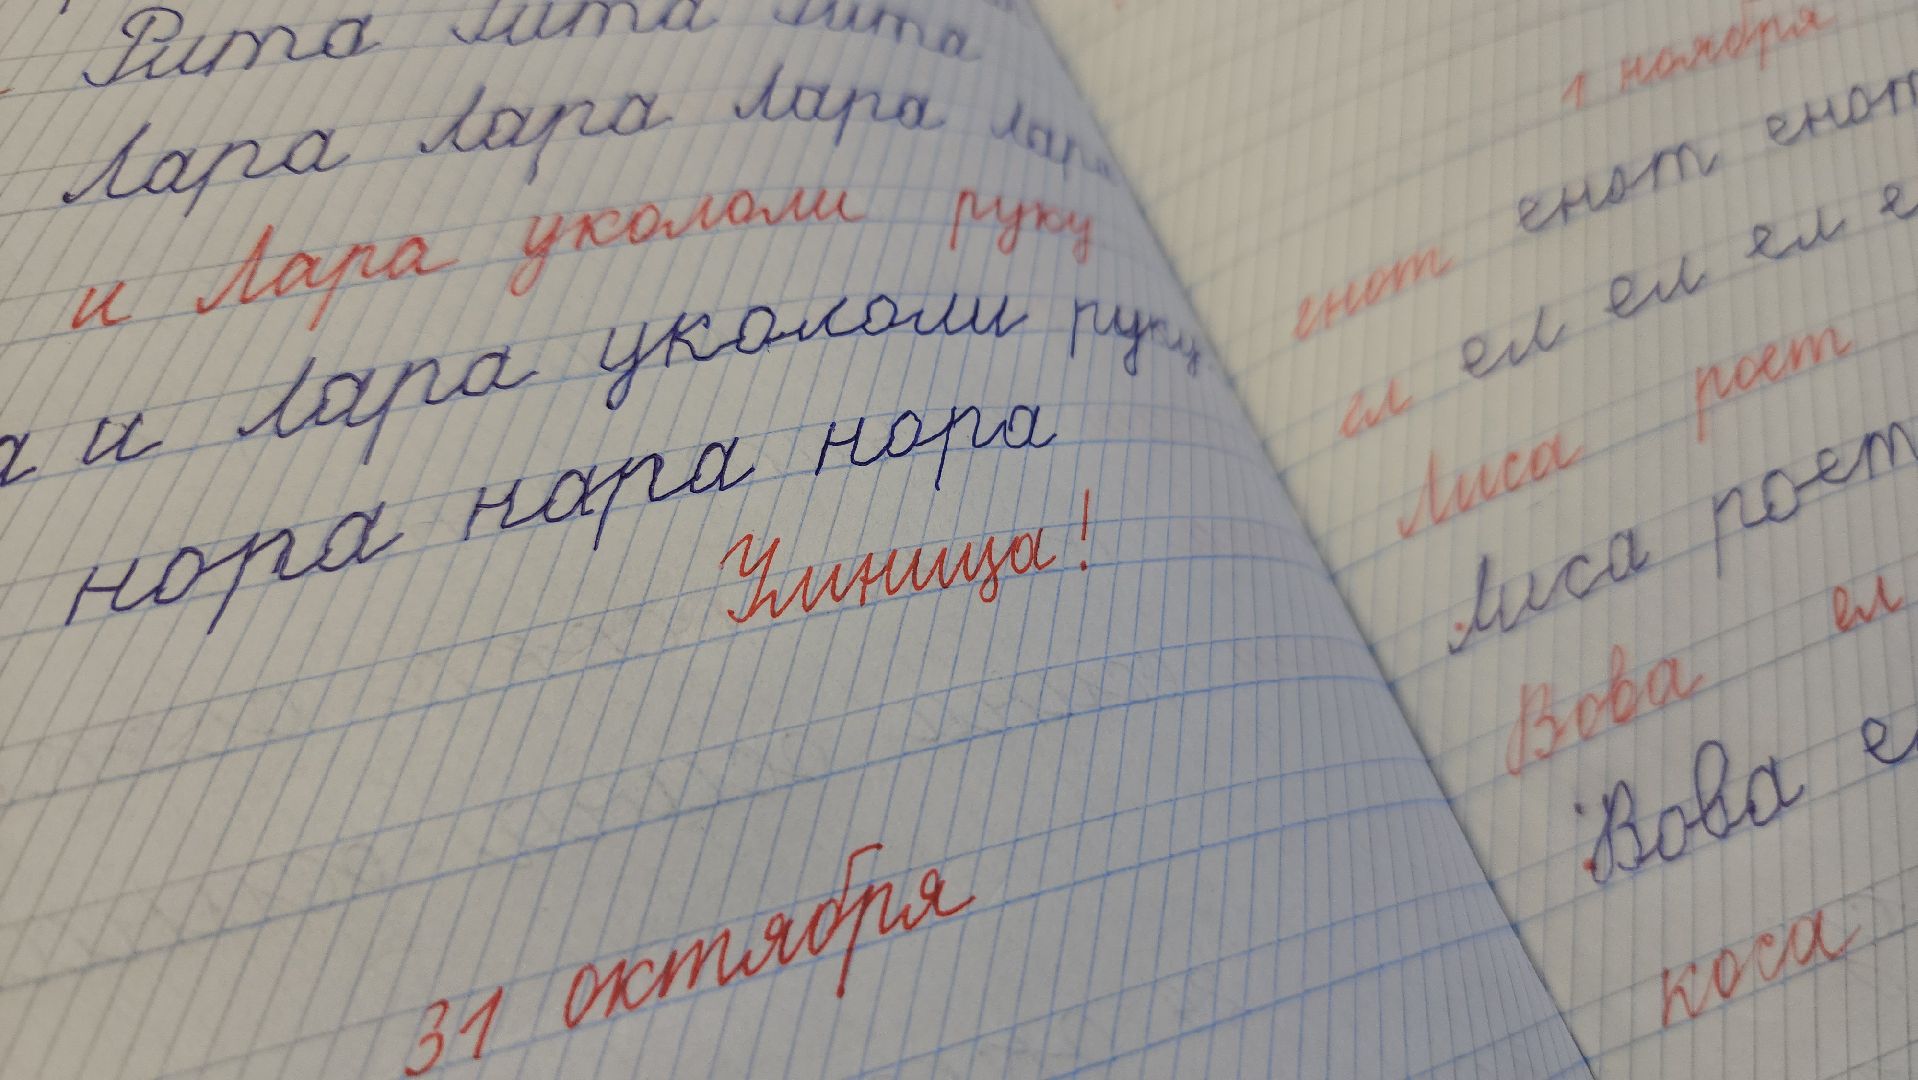 Рита Рита Рита
Лара Лара Лара Лара
и Лара укололи руку
а и Лара укололи руку
нора нара нора
Умница!
31 октября
1 ноября
енот енот енот
ел ел ел ел е
Лиса роет
Лиса роет
Вова ел
Вова е
коса